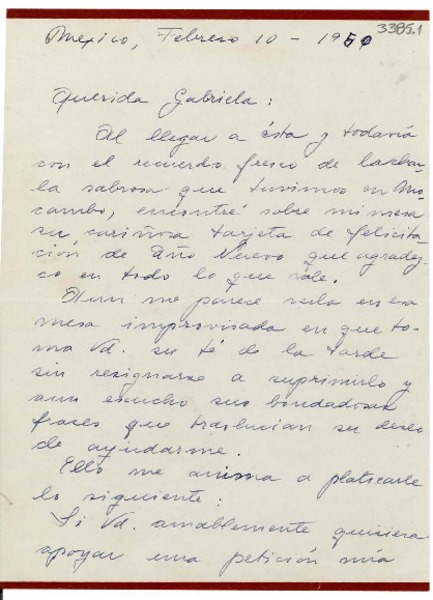 3385.1
Mexico, Febrero 10 - 1950
Querida Gabriela:
Al llegar a ésta y todavía
con el recuerdo fresco de la char-
la sabrosa que tuvimos en Mo-
cambo, encontré sobre mi mesa
su cariñosa tarjeta de felicita-
ción de Año Nuevo que agradez-
co en todo lo que vale.
Aun me parece verla en esa
mesa improvisada en que to-
ma Vd. su té de la tarde
sin resignarse a suprimirlo y
aun escucho sus bondadosas
frases que traslucian su deseo
de ayudarme.
Ello me anima a platicarle
lo siguiente:
Si Vd. amablemente quisiera
apoyar una petición mía